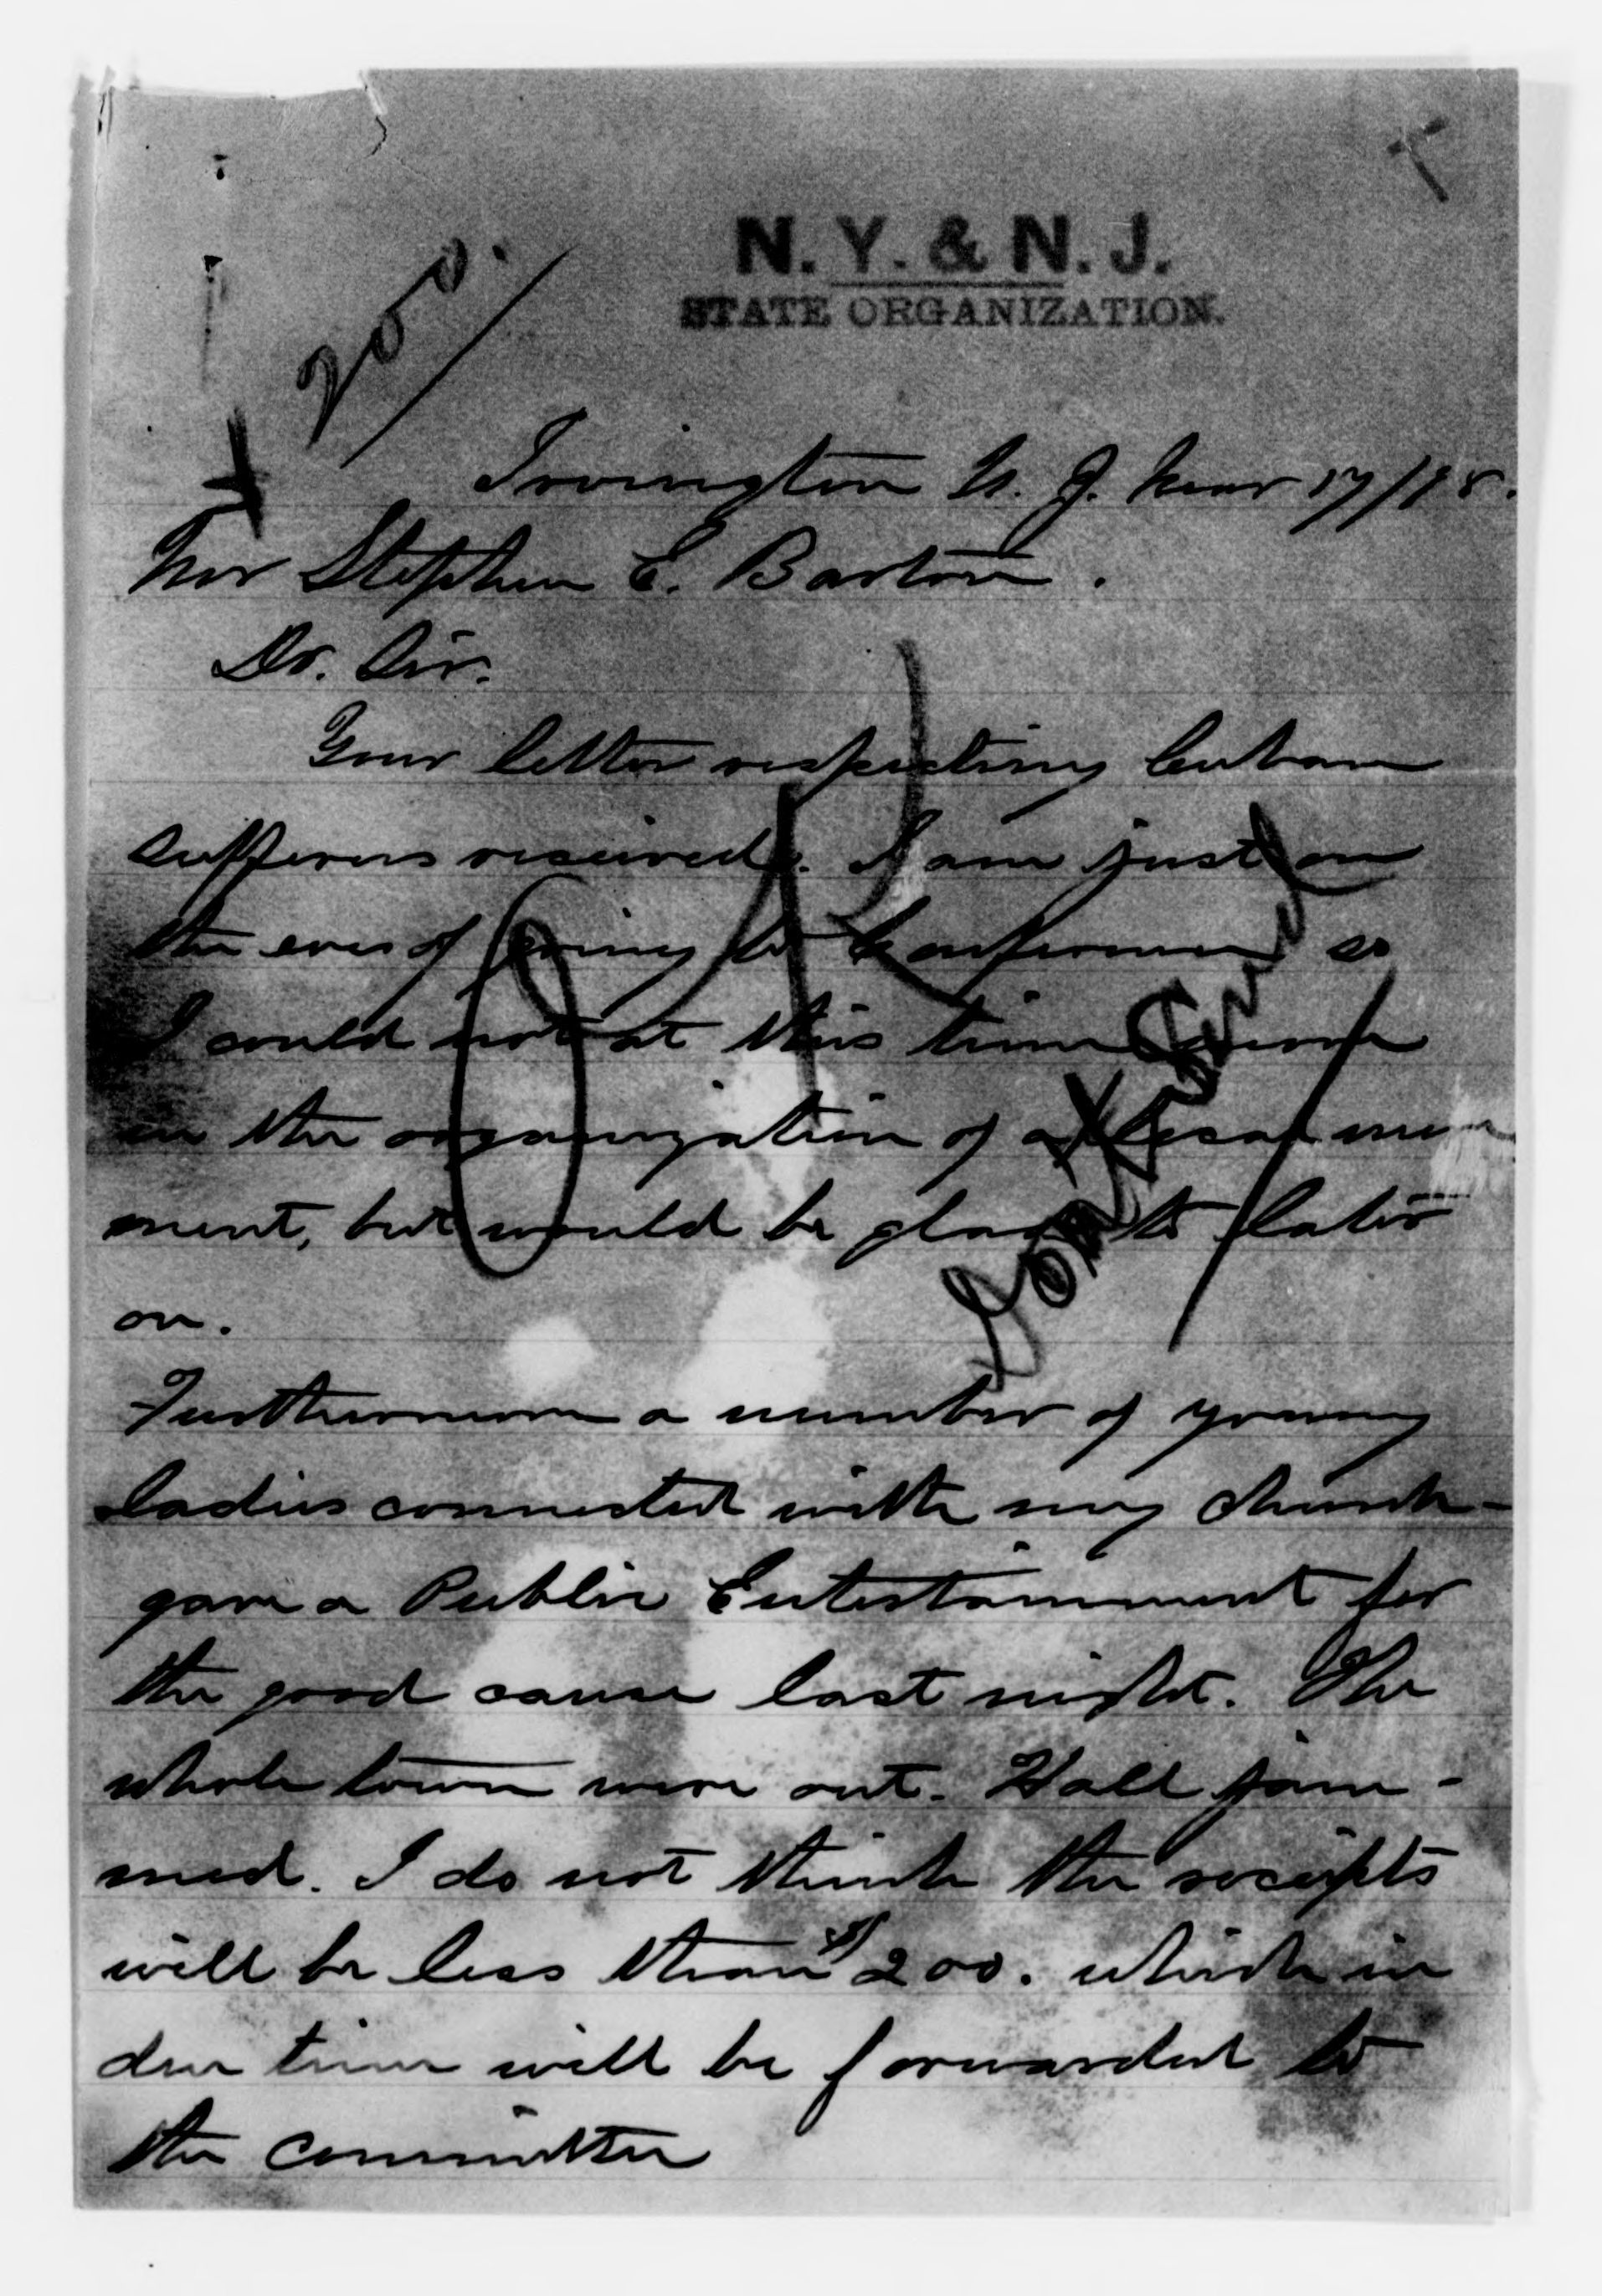 200.
N. Y. & N. J.
STATE ORGANIZATION.
Irvington N. J. Mar 17/98.
Mr Stephen E. Barton.
Dr. Sir.
Your letter respecting Cuban
sufferers received. I am just on
the eve of going to Conference so
I could not at this time
in the organization of a local move
ment, but would be glad to later
on.
Furthermore a number of young
ladies connected with my church-
gave a Public Entertainment for
the good cause last night. The
whole town were out. Hall jam-
med. I do not think the receipts
will be less than $200. which in
due time will be forwarded to
the committee
O K
Don't Send